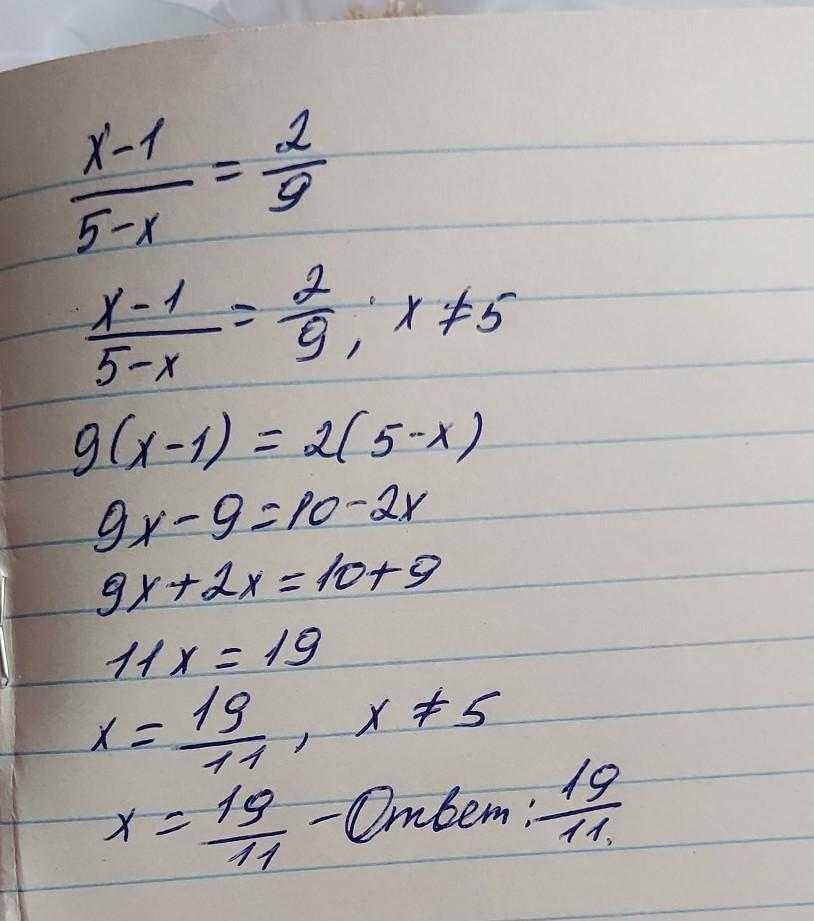 x-1/5-x = 2/9
x-1/5-x = 2/9; x ≠ 5
9(x-1) = 2(5-x)
9x-9=10-2x
9x+2x=10+9
11x = 19
x = 19/11, x ≠ 5
x = 19/11 - Ответ: 19/11.